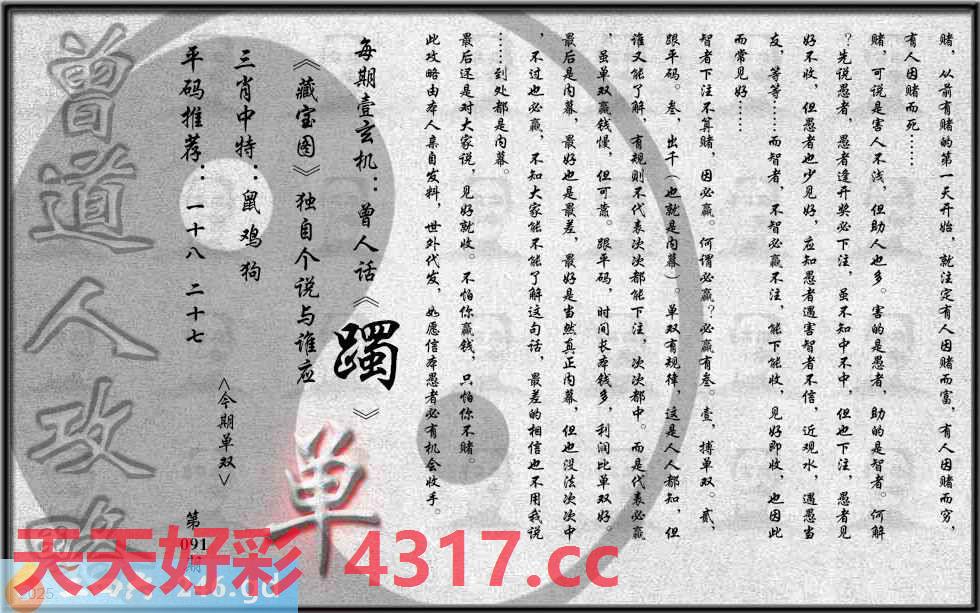 赌，从前有赌的第一天开始，就注定有人因赌而富，有人因赌而穷，
有人因赌而死……
赌，可说是害人不浅，但助人也多。害的是愚者，助的是智者。何解
？先说愚者，愚者逢开奖必下注，虽不知中不中，但也下注，愚者见
好不收，但愚者也少见好，应知愚者遇害智者不信，近观水，遇愚当
友，等等……而智者，不智必赢不注，能下能收，见好即收，也因此
而常见好……
智者下注不算赌，因必赢。何谓必赢？必赢有叁。壹，搏单双。贰，
跟平码。叁，出千（也就是内幕）。单双有规律，这是人人都知，但
谁又能了解，有规则不代表次次都能下注，次次都中。而是代表必赢
，虽单双赢钱慢，但可靠。跟平码，时间长本钱多，利润比单双好。
最后是内幕，最好也是最差，最好是当然真正内幕，但也没法次次中
，不过也必赢，不知大家能不能了解这句话，最差的相信也不用我说
……到处都是内幕。
最后还是对大家说，见好就收。不怕你赢钱，只怕你不赌。
此攻略由本人亲自发料，世外代发，如愿信本愚者必有机会收手。
每期壹玄机：曾人话《躅》
《藏宝图》独自个说与谁应
三肖中特：鼠鸡狗
平码推荐：一十八 二十七
<今期单双>
单
第
091
期
曾道人攻略
天天好彩 4317.cc
2025
246.gd